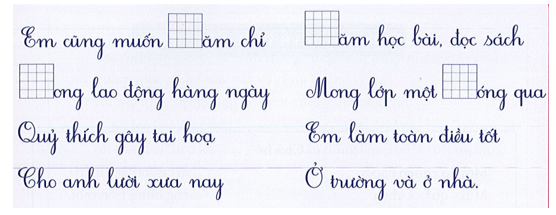 Em cũng muốn ăm chỉ
ong lao động hàng ngày
Quỷ thích gây tai hoạ
Cho anh lười xưa nay
ăm học bài, đọc sách
Mong lớp một óng qua
Em làm toàn điều tốt
Ở trường và ở nhà.